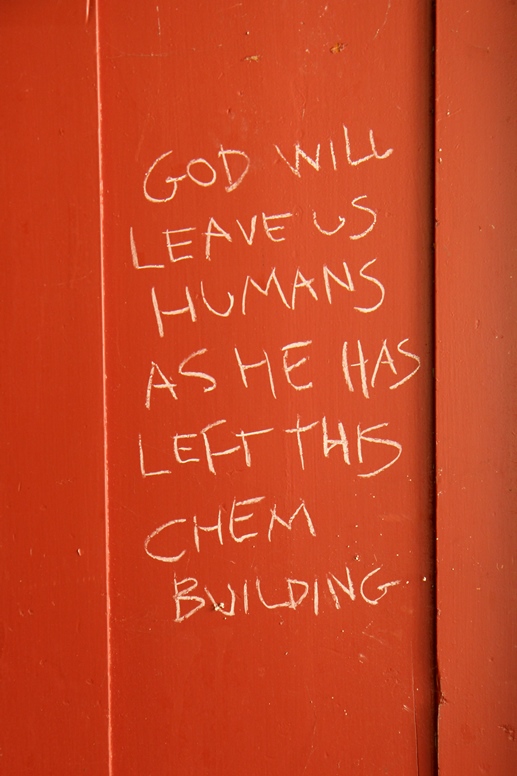 GOD WILL
LEAVE US
HUMANS
AS HE HAS
LEFT THIS
CHEM
BUILDING